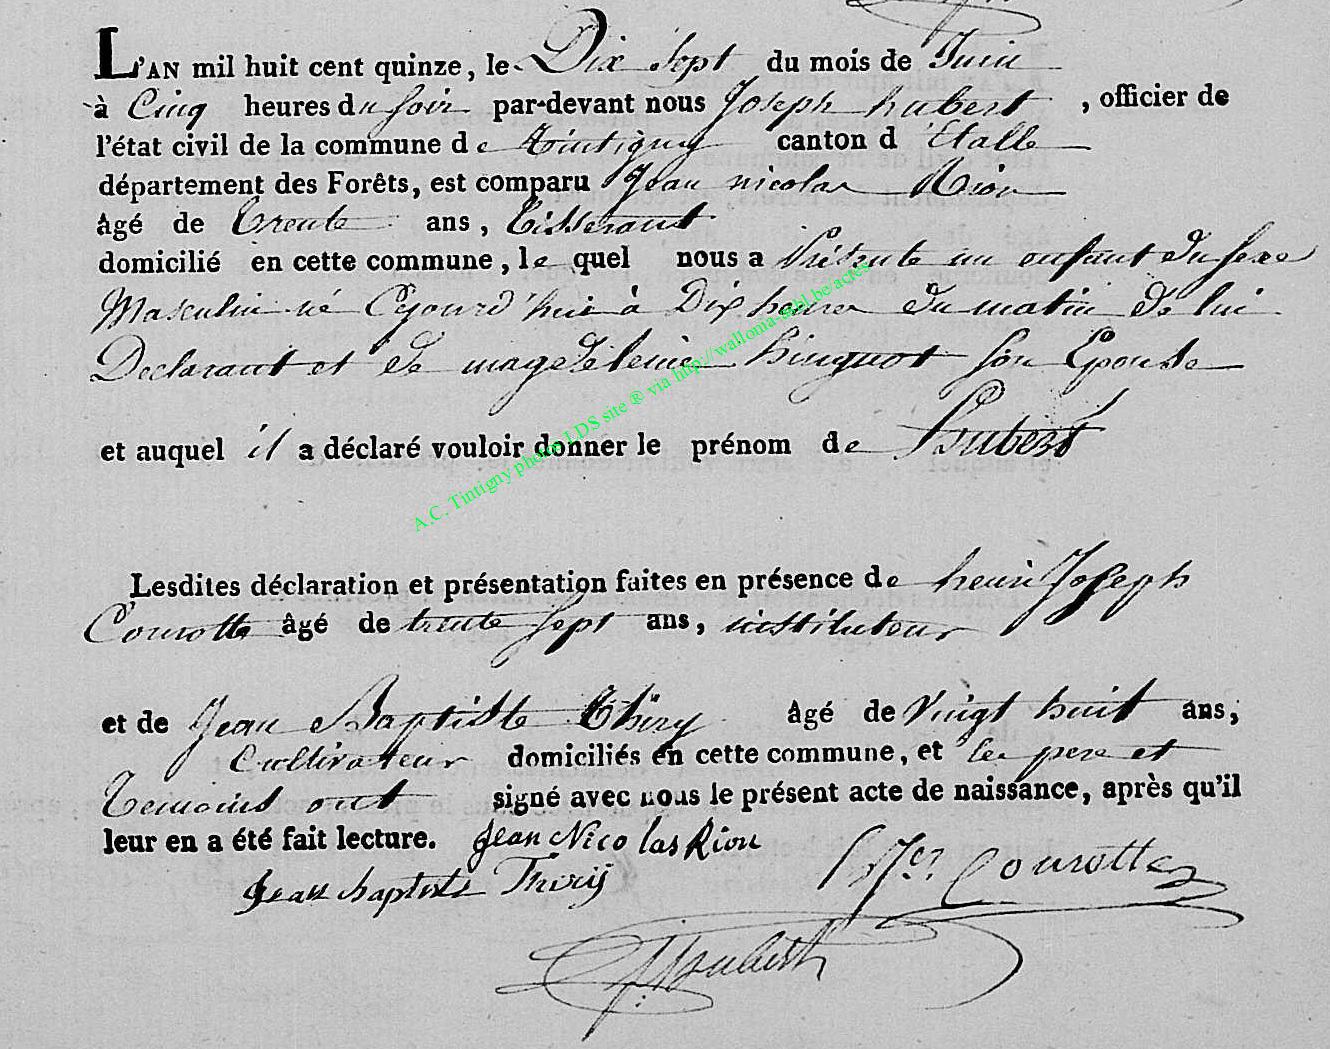 L'AN mil huit cent quinze, le Dix Sept du mois de Juin
à Cinq heures du soir par-devant nous Joseph hubert, officier de
l'état civil de la commune de tintigny canton d'Etalle
département des Forêts, est comparu Jean nicolas Rion
âgé de trente ans, tisserant
domicilié en cette commune, le quel nous a Présenté un enfant du sexe
Masculin né Cejourd'hui à Dix heures du matin de lui
Declarant et de magdeleine hinguot son Epouse
et auquel il a déclaré vouloir donner le prénom de hubert
A.C. Tintigny photos LDS site ® via http://wallonia-asbl.be/actes
Lesdites déclaration et présentation faites en présence de henri Joseph
Courotte âgé de trente sept ans, instituteur
et de Jean Baptiste thiry âgé de vingt huit ans,
Cultivateur domiciliés en cette commune, et les pere et
temoins ont signé avec nous le présent acte de naissance, après qu'il
leur en a été fait lecture. Jean Nicolas Rion
Jean baptiste Thirÿ Courotte
hubert